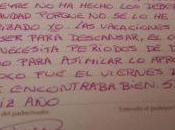 NO HA HECHO LOS DEBE
UIDAD PORQUE NO SE LO HE
YO. LAS VACACIONES
SER PARA DESCANSAR, EL
NECESITA PERÍODOS DE D
O PARA ASIMILAR LO APRE
OCO FUE EL VIERNES
E ENCONTRABA BIEN. S
IZ AÑO
del padre/madre
Enterado el profesor